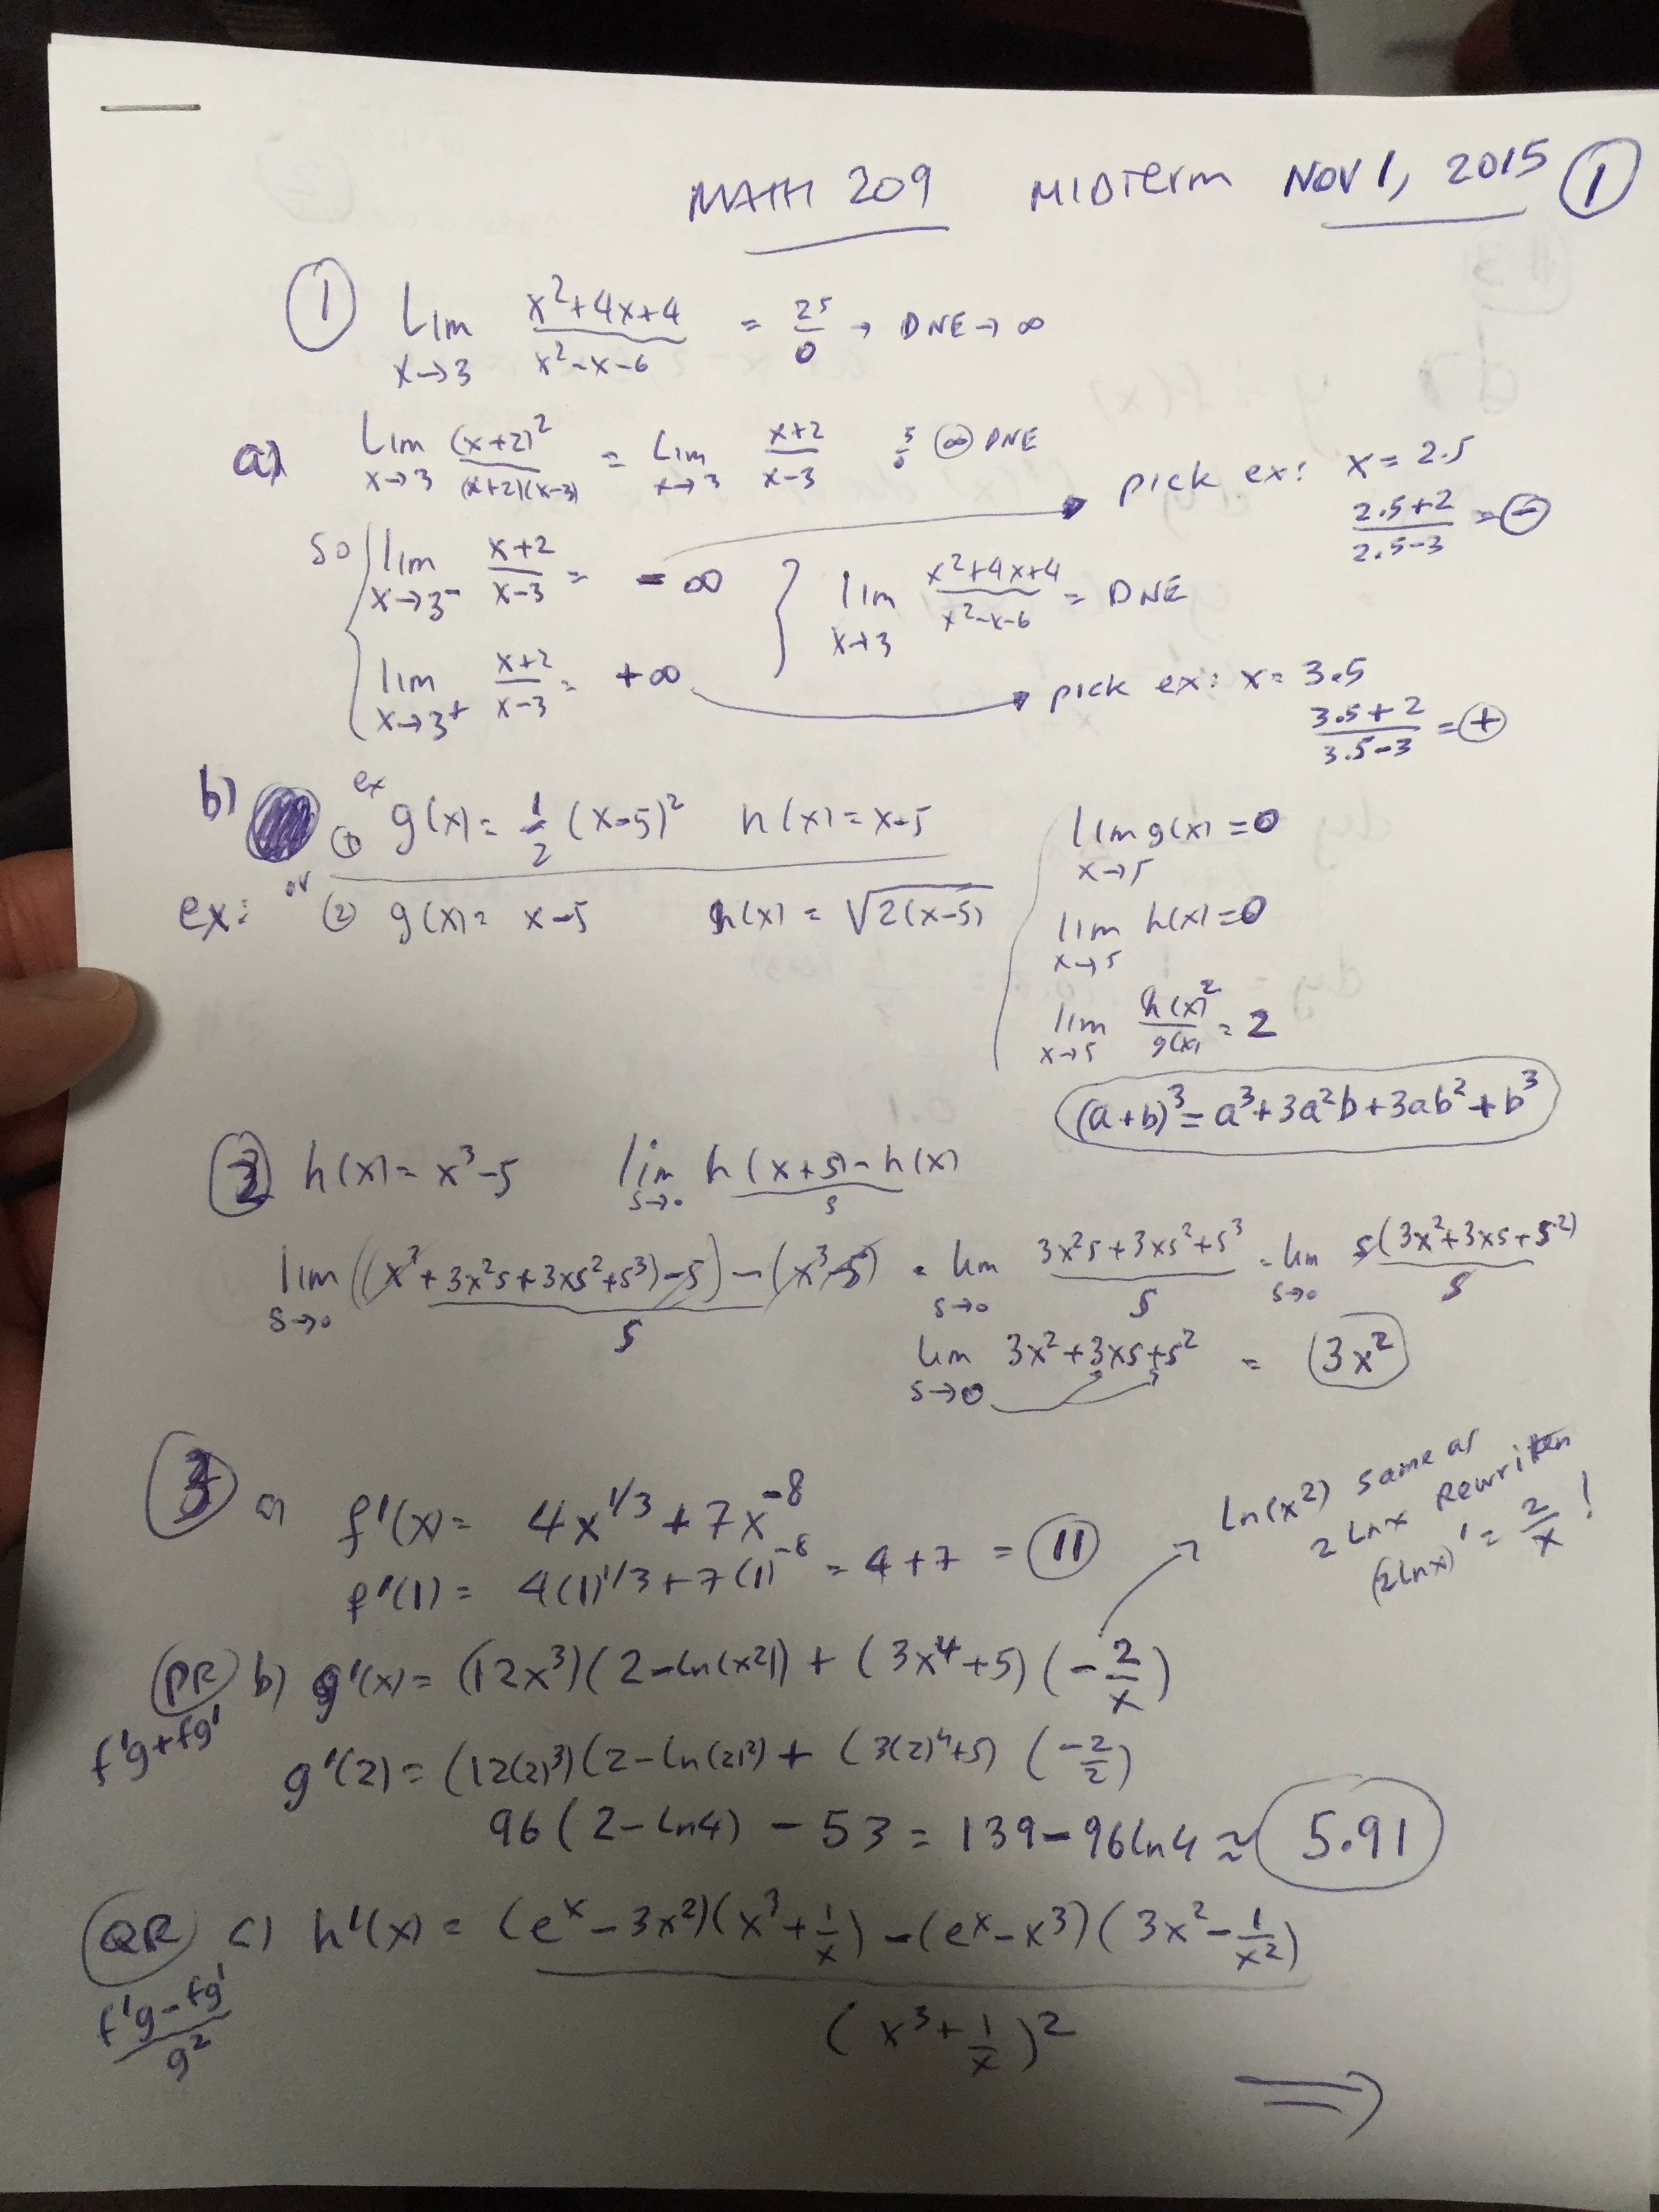 MATH 209 MIDTERM NOV 1, 2015 ①
① Lim x→3 (x²+4x+4)/(x²-x-6) = 25/0 → DNE → ∞
a) Lim x→3 (x+2)²/((x+2)(x-3)) = Lim x→3 (x+2)/(x-3) 5/0 ∞ DNE
pick ex: x = 2.5
(2.5+2)/(2.5-3) = ⊖
so lim x→3⁻ (x+2)/(x-3) = -∞
lim x→3 (x²+4x+4)/(x²-x-6) = DNE
lim x→3⁺ (x+2)/(x-3) = +∞
pick ex: x = 3.5
(3.5+2)/(3.5-3) = ⊕
b) ex ① g(x) = 1/2 (x-5)² h(x) = x-5
ex: or ② g(x) = x-5 h(x) = √(2(x-5))
lim x→5 g(x) = 0
lim x→5 h(x) = 0
lim x→5 h(x)²/g(x) = 2
(a+b)³ = a³+3a²b+3ab²+b³
② h(x) = x³-5 lim s→0 (h(x+s)-h(x))/s
lim s→0 ((x³+3x²s+3xs²+s³)-5)-(x³-5)/s = lim s→0 (3x²s+3xs²+s³)/s = lim s→0 s(3x²+3xs+s²)/s
lim s→0 3x²+3xs+s² = 3x²
③ a) f'(x) = 4x^1/3 + 7x^-8
f'(1) = 4(1)^1/3 + 7(1)^-8 = 4+7 = 11
ln(x²) same as
2 ln x rewritten
(2lnx)' = 2/x !
PR b) g'(x) = (12x³)(2-ln(x²)) + (3x⁴+5)(-2/x)
f'g+fg'
g'(2) = (12(2)³)(2-ln(2)²) + (3(2)⁴+5) (-2/2)
96(2-ln4) - 53 = 139-96ln4 ≈ 5.91
QR c) h'(x) = ((e^x-3x²)(x³+1/x)-(e^x-x³)(3x²-1/x²))/(x³+1/x)²
(f'g-fg')/g²
⇒